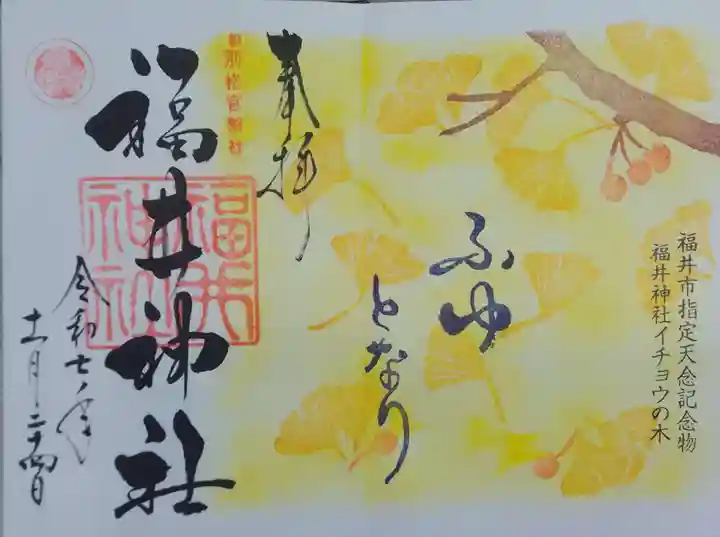 福井市指定天念記念物
福井神社イチョウの木
ふゆ
となり
奉拝
別格官幣社
福井神社
福井
神社
令和七年
十一月二十四日